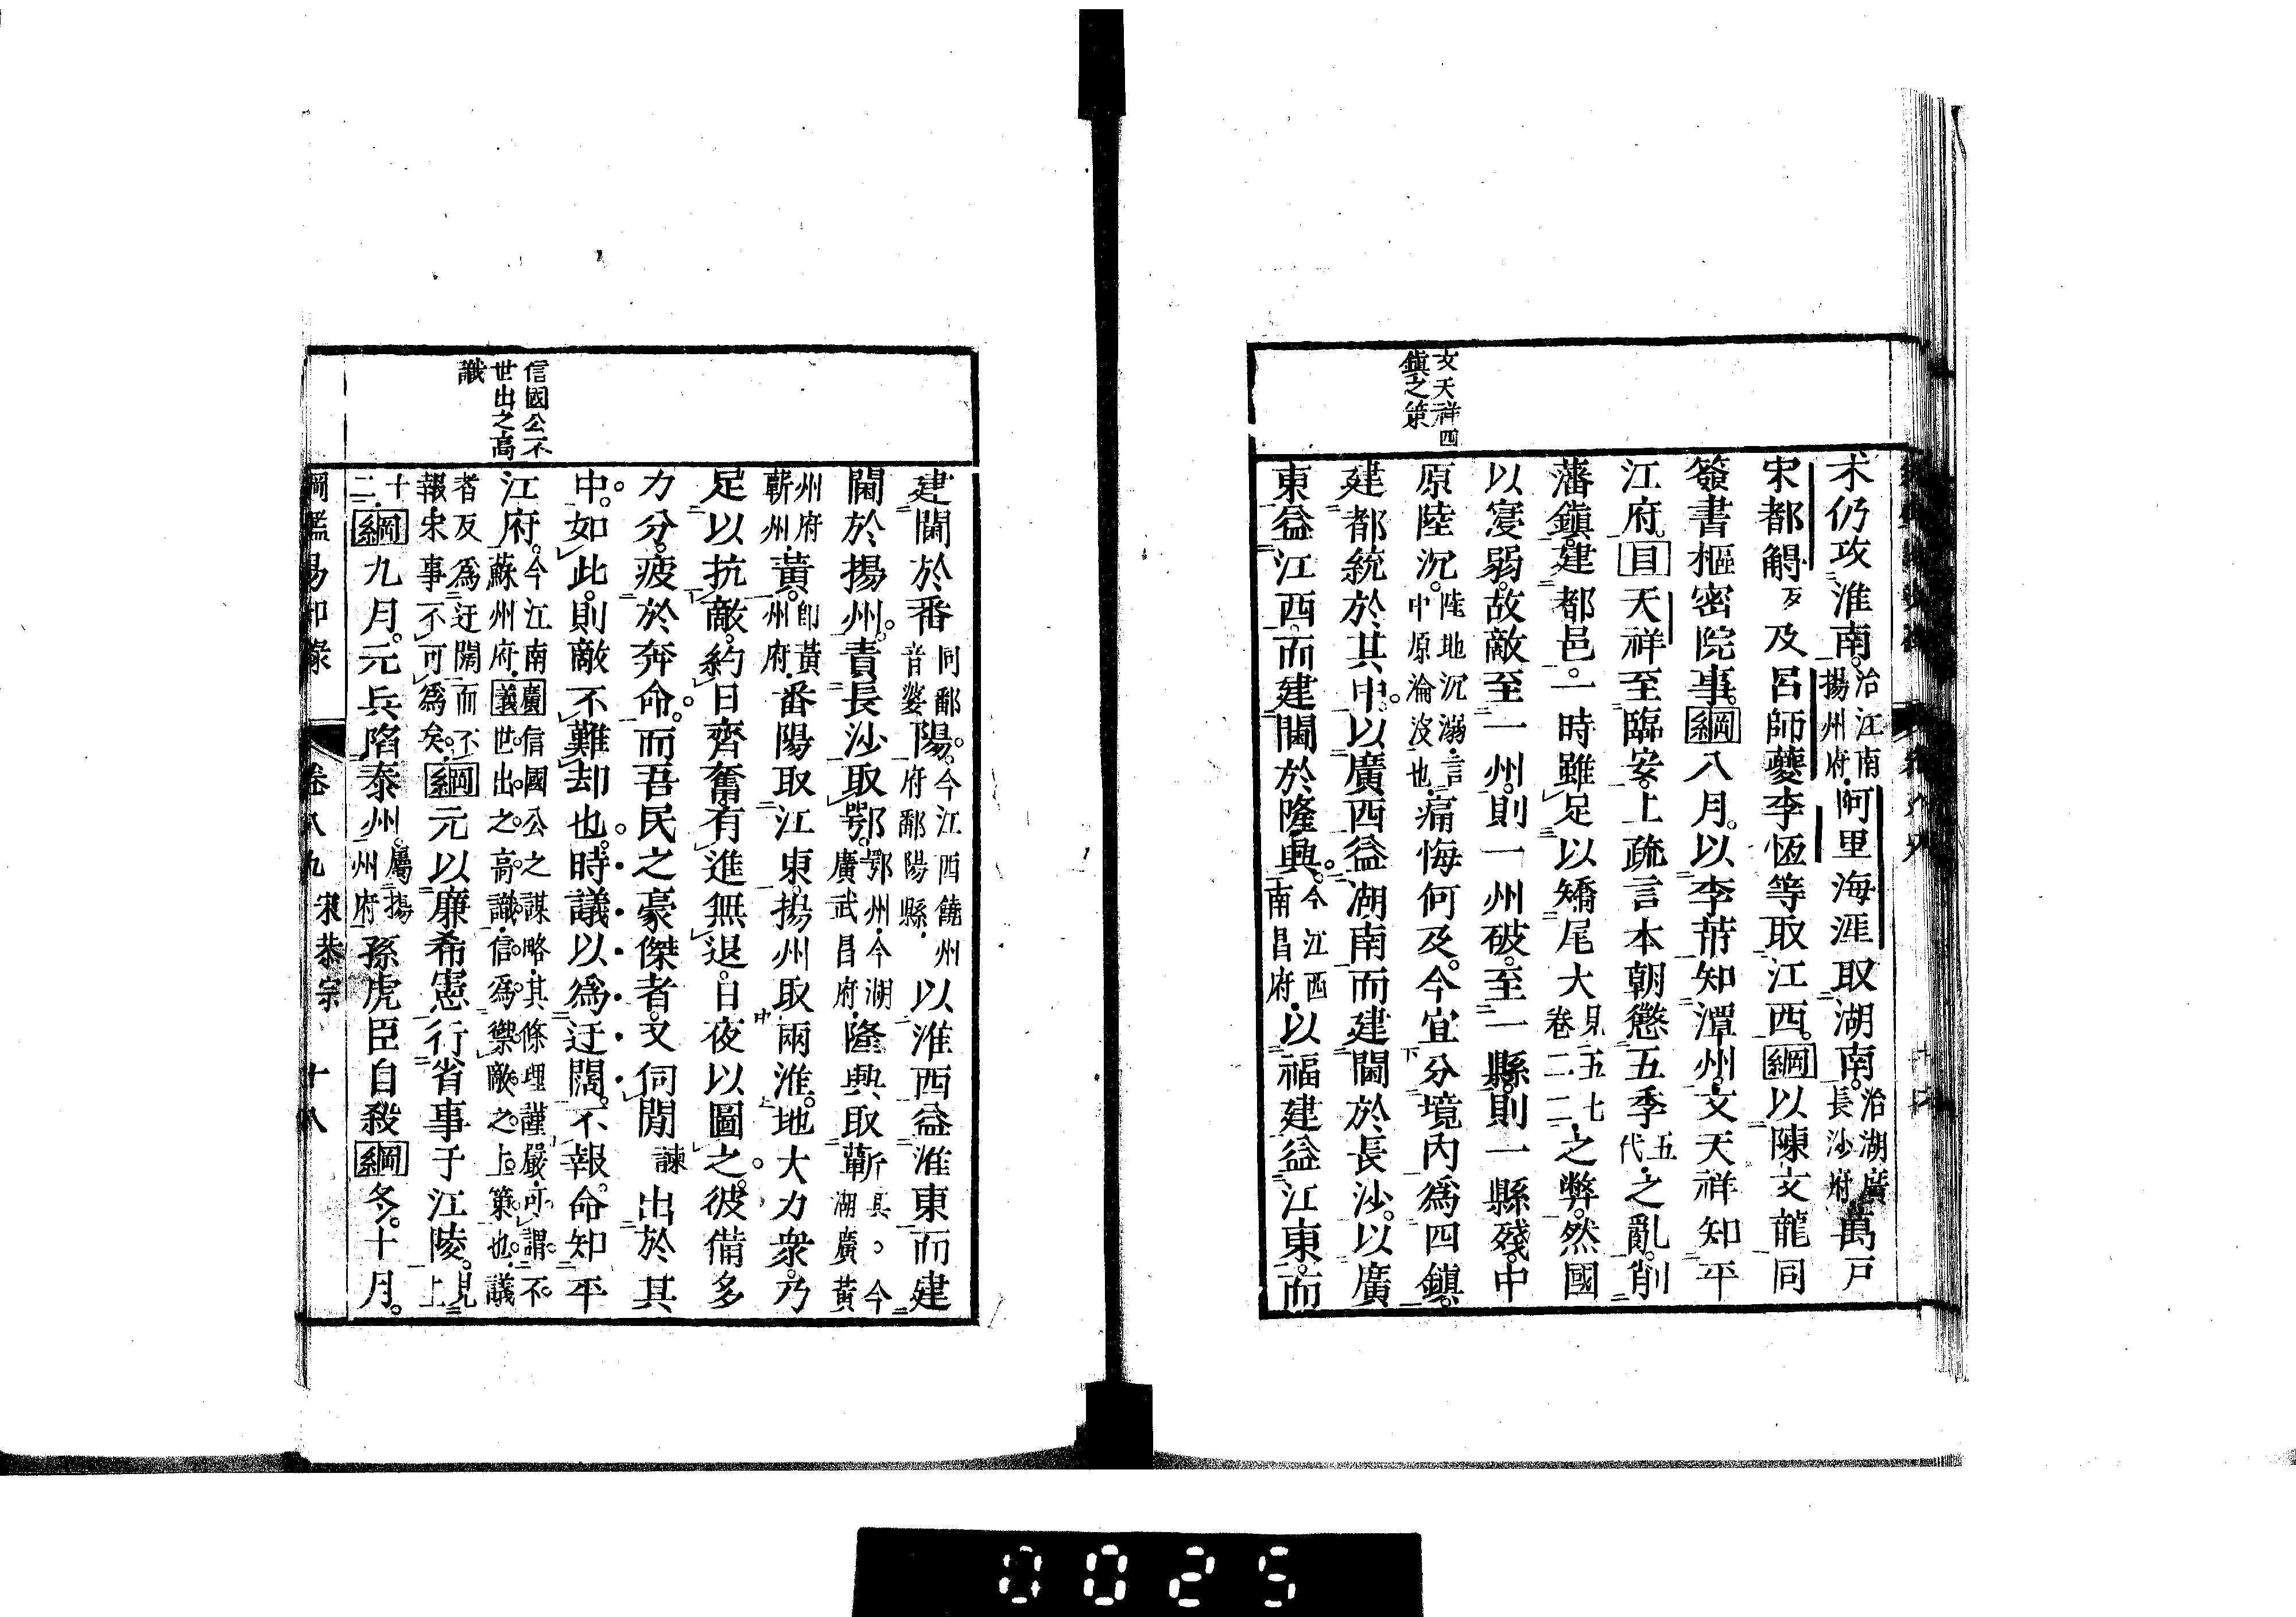 文天祥四
鎮之策
朮仍攻淮南。治江南揚州府。阿里海涯取湖南。治湖廣長沙府萬戸
宋都䚟及及呂師夔李恆等取江西。綱以陳文龍同
簽書樞密院事。綱八月。以李芾知潭州。文天祥知平
江府。目天祥至臨安。上疏言本朝懲五季五代之亂。削
藩鎮。建都邑。一時雖足以矯尾大見五七卷二二之弊。然國
以寖弱。故敵至一州。則一州破。至一縣則一縣殘。中
原陸沉。陸地沉溺。言中原淪沒也。痛悔何及。今宜分境內爲四鎮。
建都統於其中。以廣西益湖南而建閫於長沙。以廣
東益江西。而建閫於隆興。今江西南昌府。以福建益江東。而
信國公不
世出之高
識
建閫於番同鄱音婆陽。今江西饒州府鄱陽縣。以淮西益淮東而建
閫於揚州。責長沙取鄂。鄂州。今湖廣武昌府。隆興取蘄具。今湖廣黃
州府蘄州。黃。卽黃州府。番陽取江東。揚州取兩淮。地大力衆。乃
足以抗敵。約日齊奮。有進無退。日夜以圖之。彼備多
力分。疲於奔命。而吾民之豪傑者。又伺閒諫出於其
中。如此。則敵不難却也。時議以爲迂闊。不報。命知平
江府。今江南蘇州府。廣義信國公之謀略。其條理謹嚴。可謂不世出之高識。信爲禦敵之上策也。議
者反爲迂闊而不報。宋事不可爲矣。綱元以廉希憲行省事于江陵。見上
十二。綱九月。元兵陷泰州。屬揚州府。孫虎臣自殺綱冬。十月。
綱鑑易知錄 卷八九 宋恭宗 十八
0025